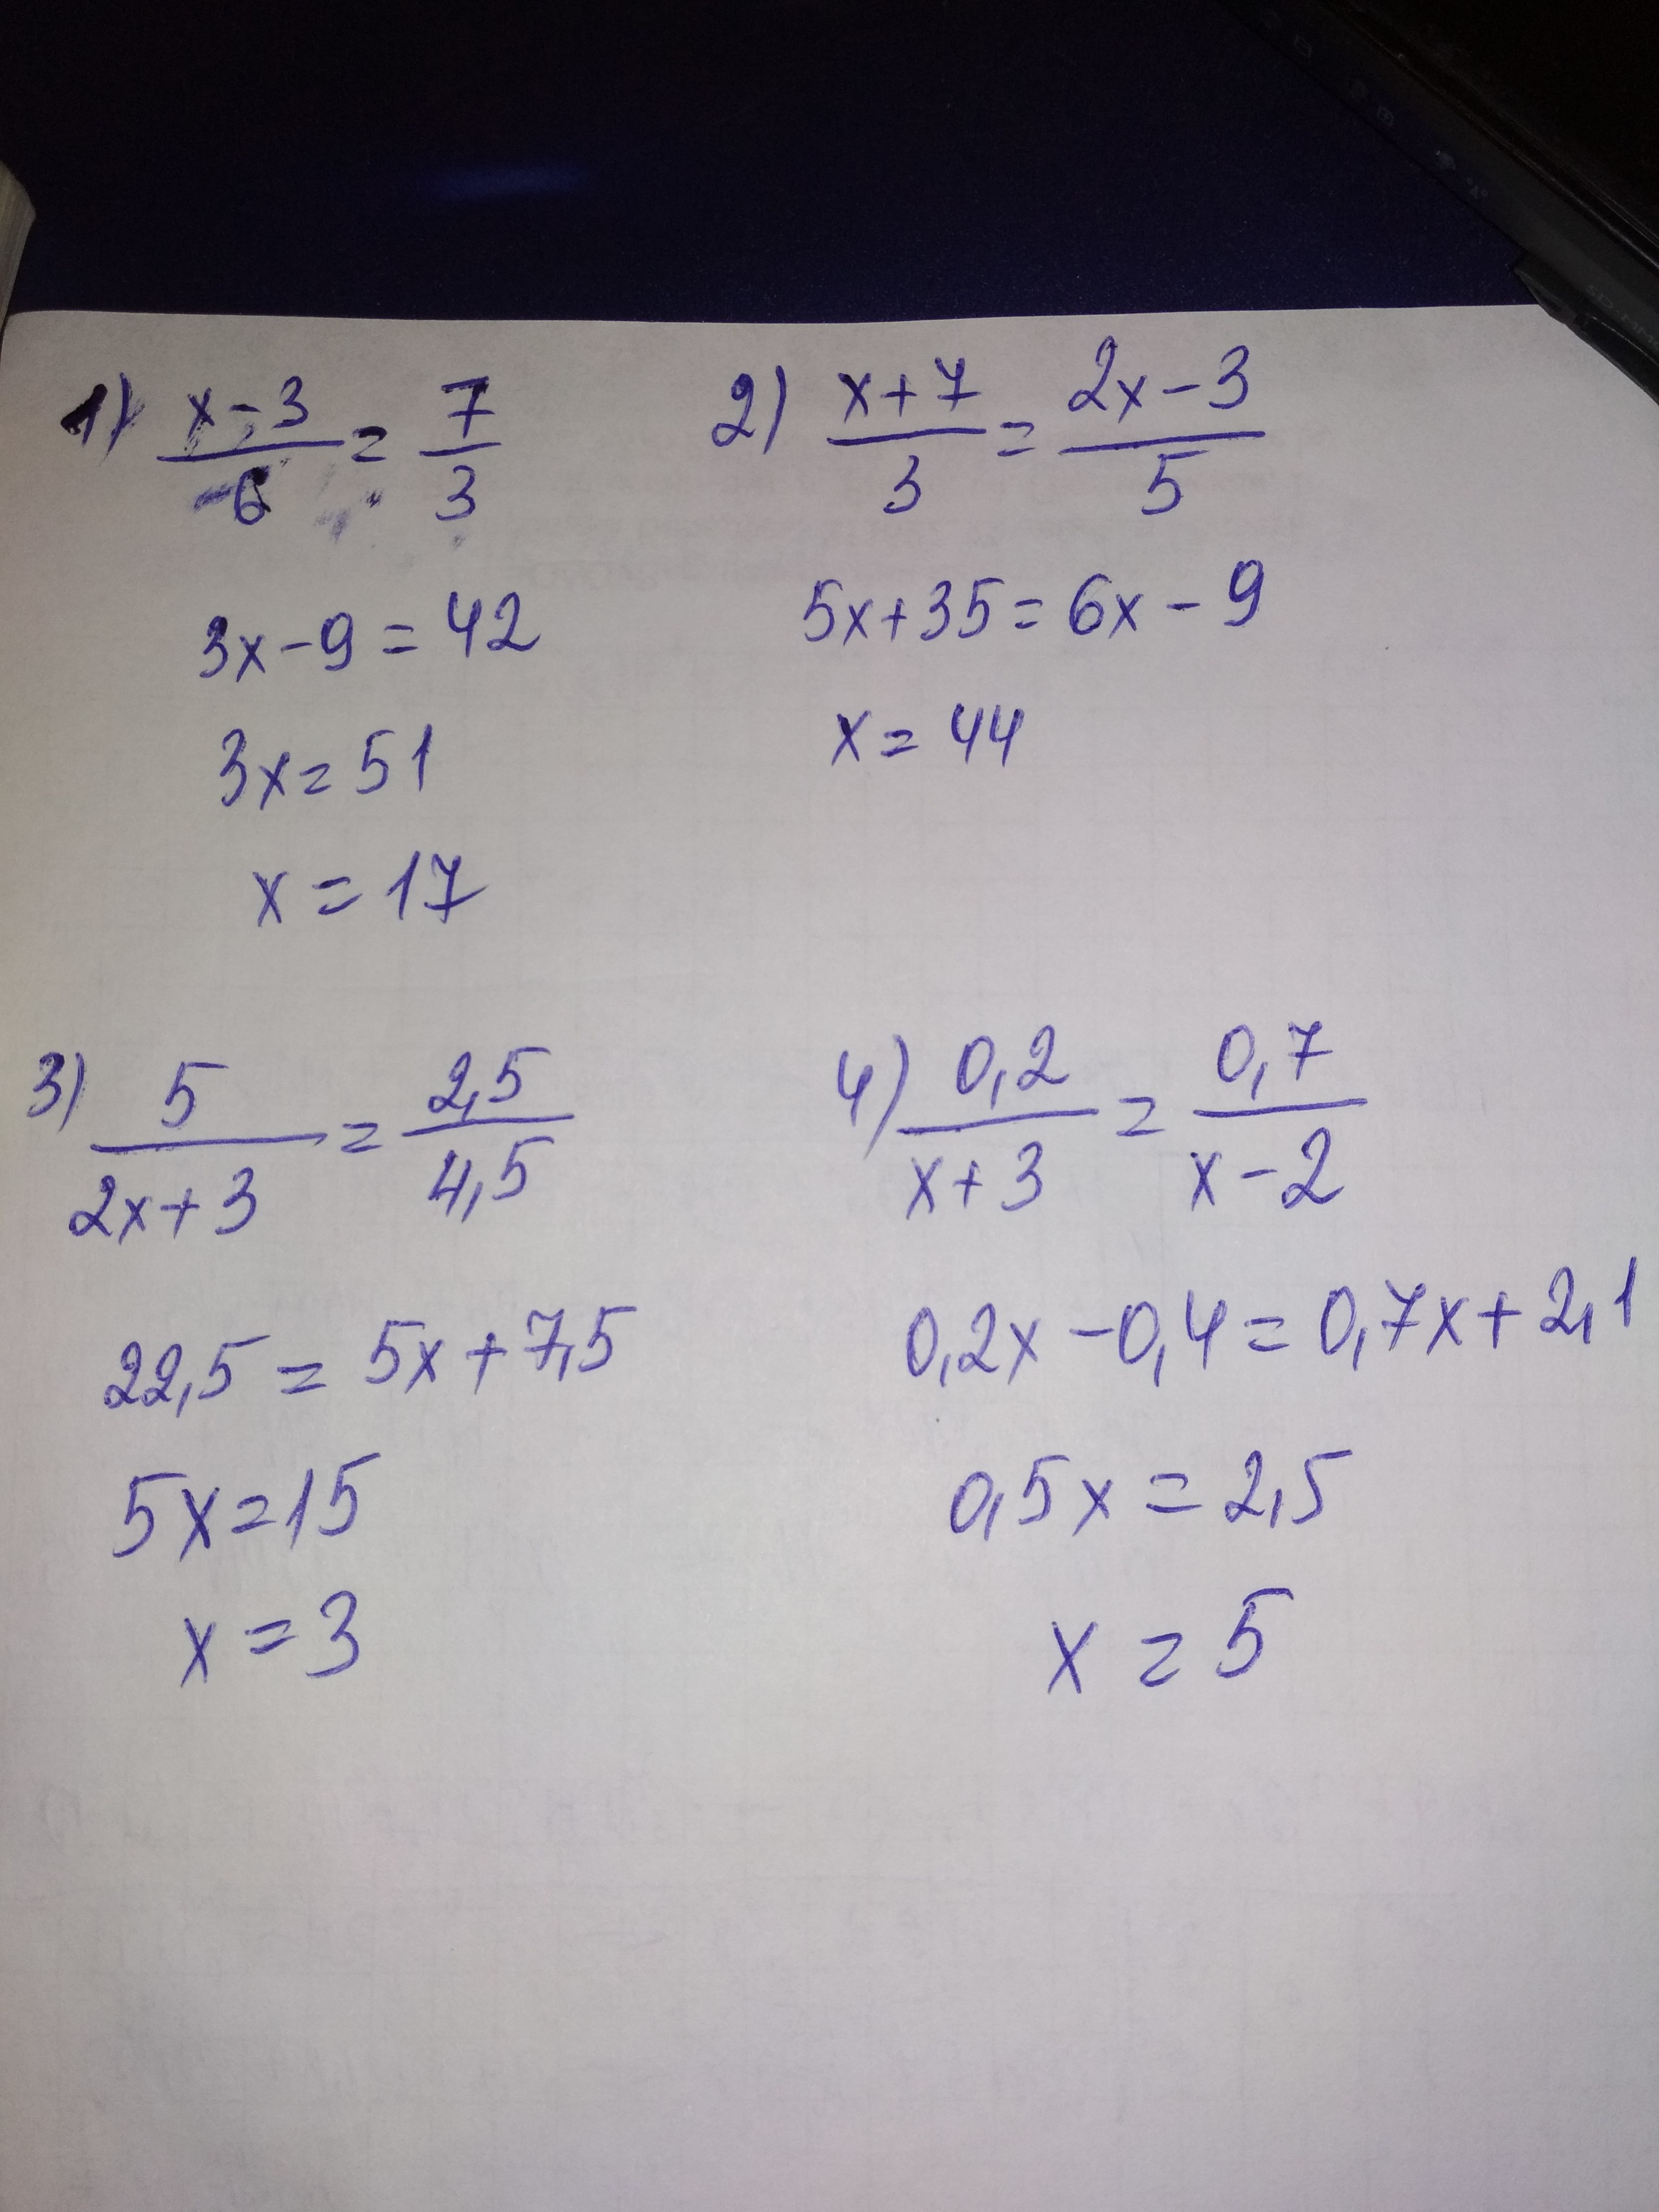 1) x-3/6 = 7/3
3x-9=42
3x=51
x=17
2) x+7/3 = 2x-3/5
5x+35=6x-9
x=44
3) 5/2x+3 = 2,5/4,5
22,5=5x+7,5
5x=15
x=3
4) 0,2/x+3 = 0,7/x-2
0,2x-0,4=0,7x+2,1
0,5x=2,5
x=5